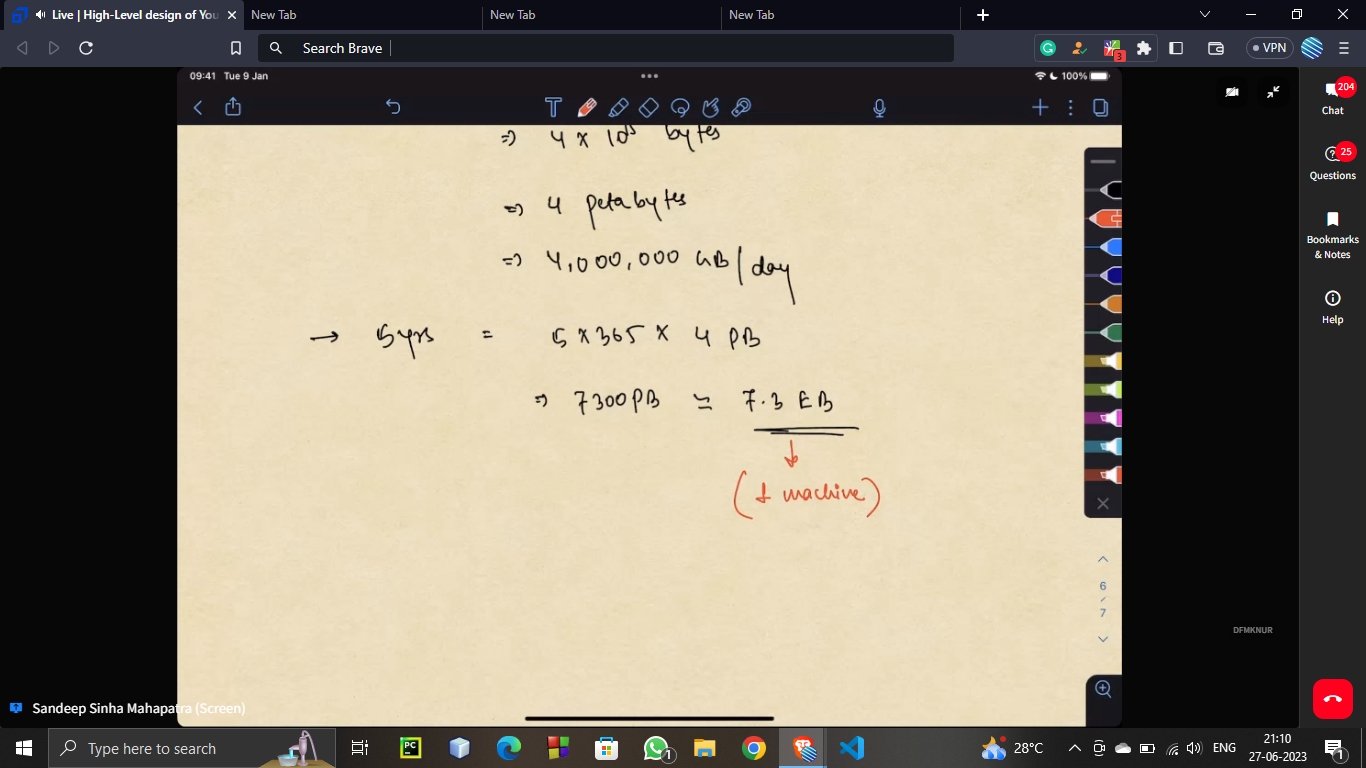 Live | High-Level design of You
New Tab
New Tab
New Tab
Search Brave
3
VPN
09:41 Tue 9 Jan
100%
T
=> 4 x 10 bytes
=> 4 petabytes
=> 4,000,000 GB/day
→ 5 yrs = 5 x 365 x 4 PB
=> 7300 PB ≃ 7.3 EB
↓
(1 machine)
204
Chat
25
Questions
Bookmarks
& Notes
Help
6
7
DFMKNUR
Sandeep Sinha Mahapatra (Screen)
Type here to search
PC
1
28°C
ENG
21:10
27-06-2023
1